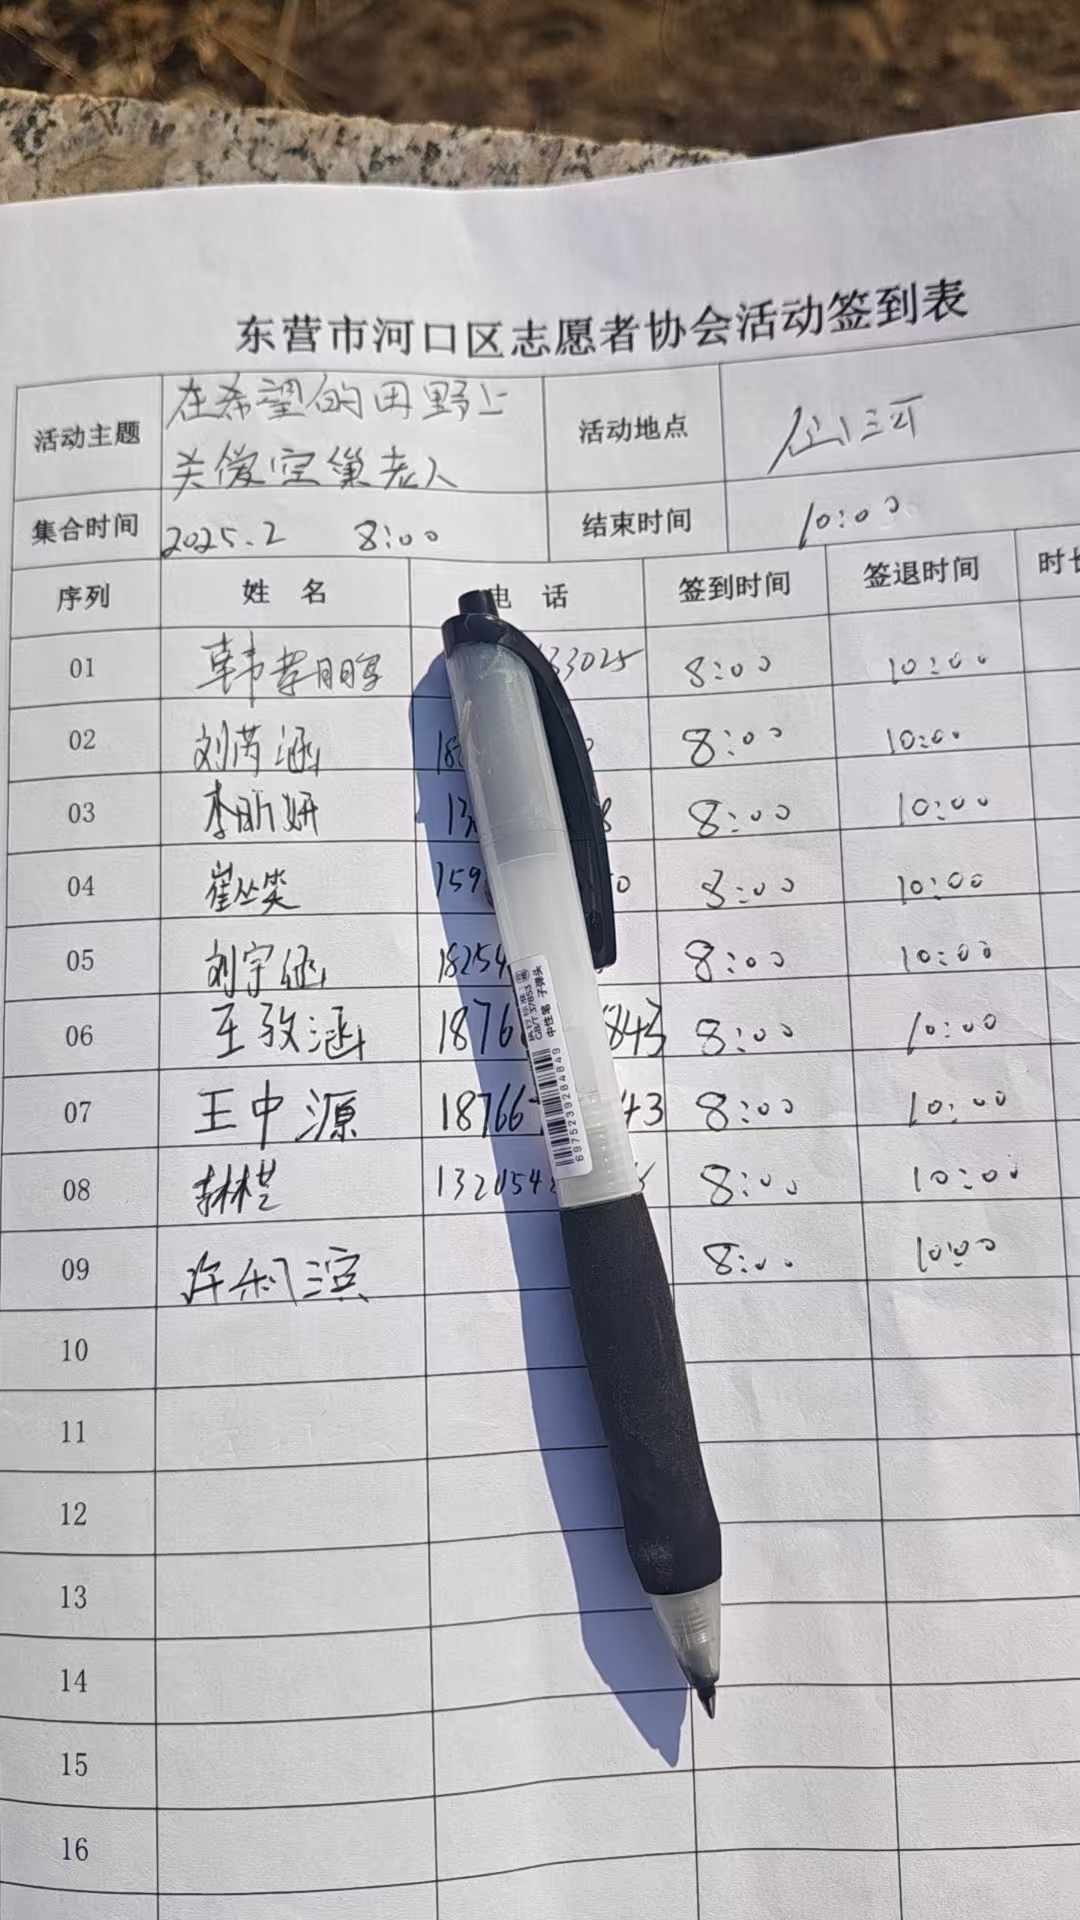 东营市河口区志愿者协会活动签到表
活动主题 在希望的田野上 关爱空巢老人 活动地点 仙河
集合时间 2025.2 8:00 结束时间 10:00
序列 姓名 电话 签到时间 签退时间 时长
01 韩孝鹏 33025 8:00 10:00
02 刘芮涵 18 8:00 10:00
03 李昕妍 13 8 8:00 10:00
04 崔丛笑 159 0 8:00 10:00
05 刘宇涵 18254 8:00 10:00
06 王孜涵 1876 843 8:00 10:00
07 王中源 18766 43 8:00 10:00
08 132054 8:00 10:00
09 许利滨 8:00 10:00
10
11
12
13
14
15
16
GB/T 37853
中性笔 子弹头
6975239284849